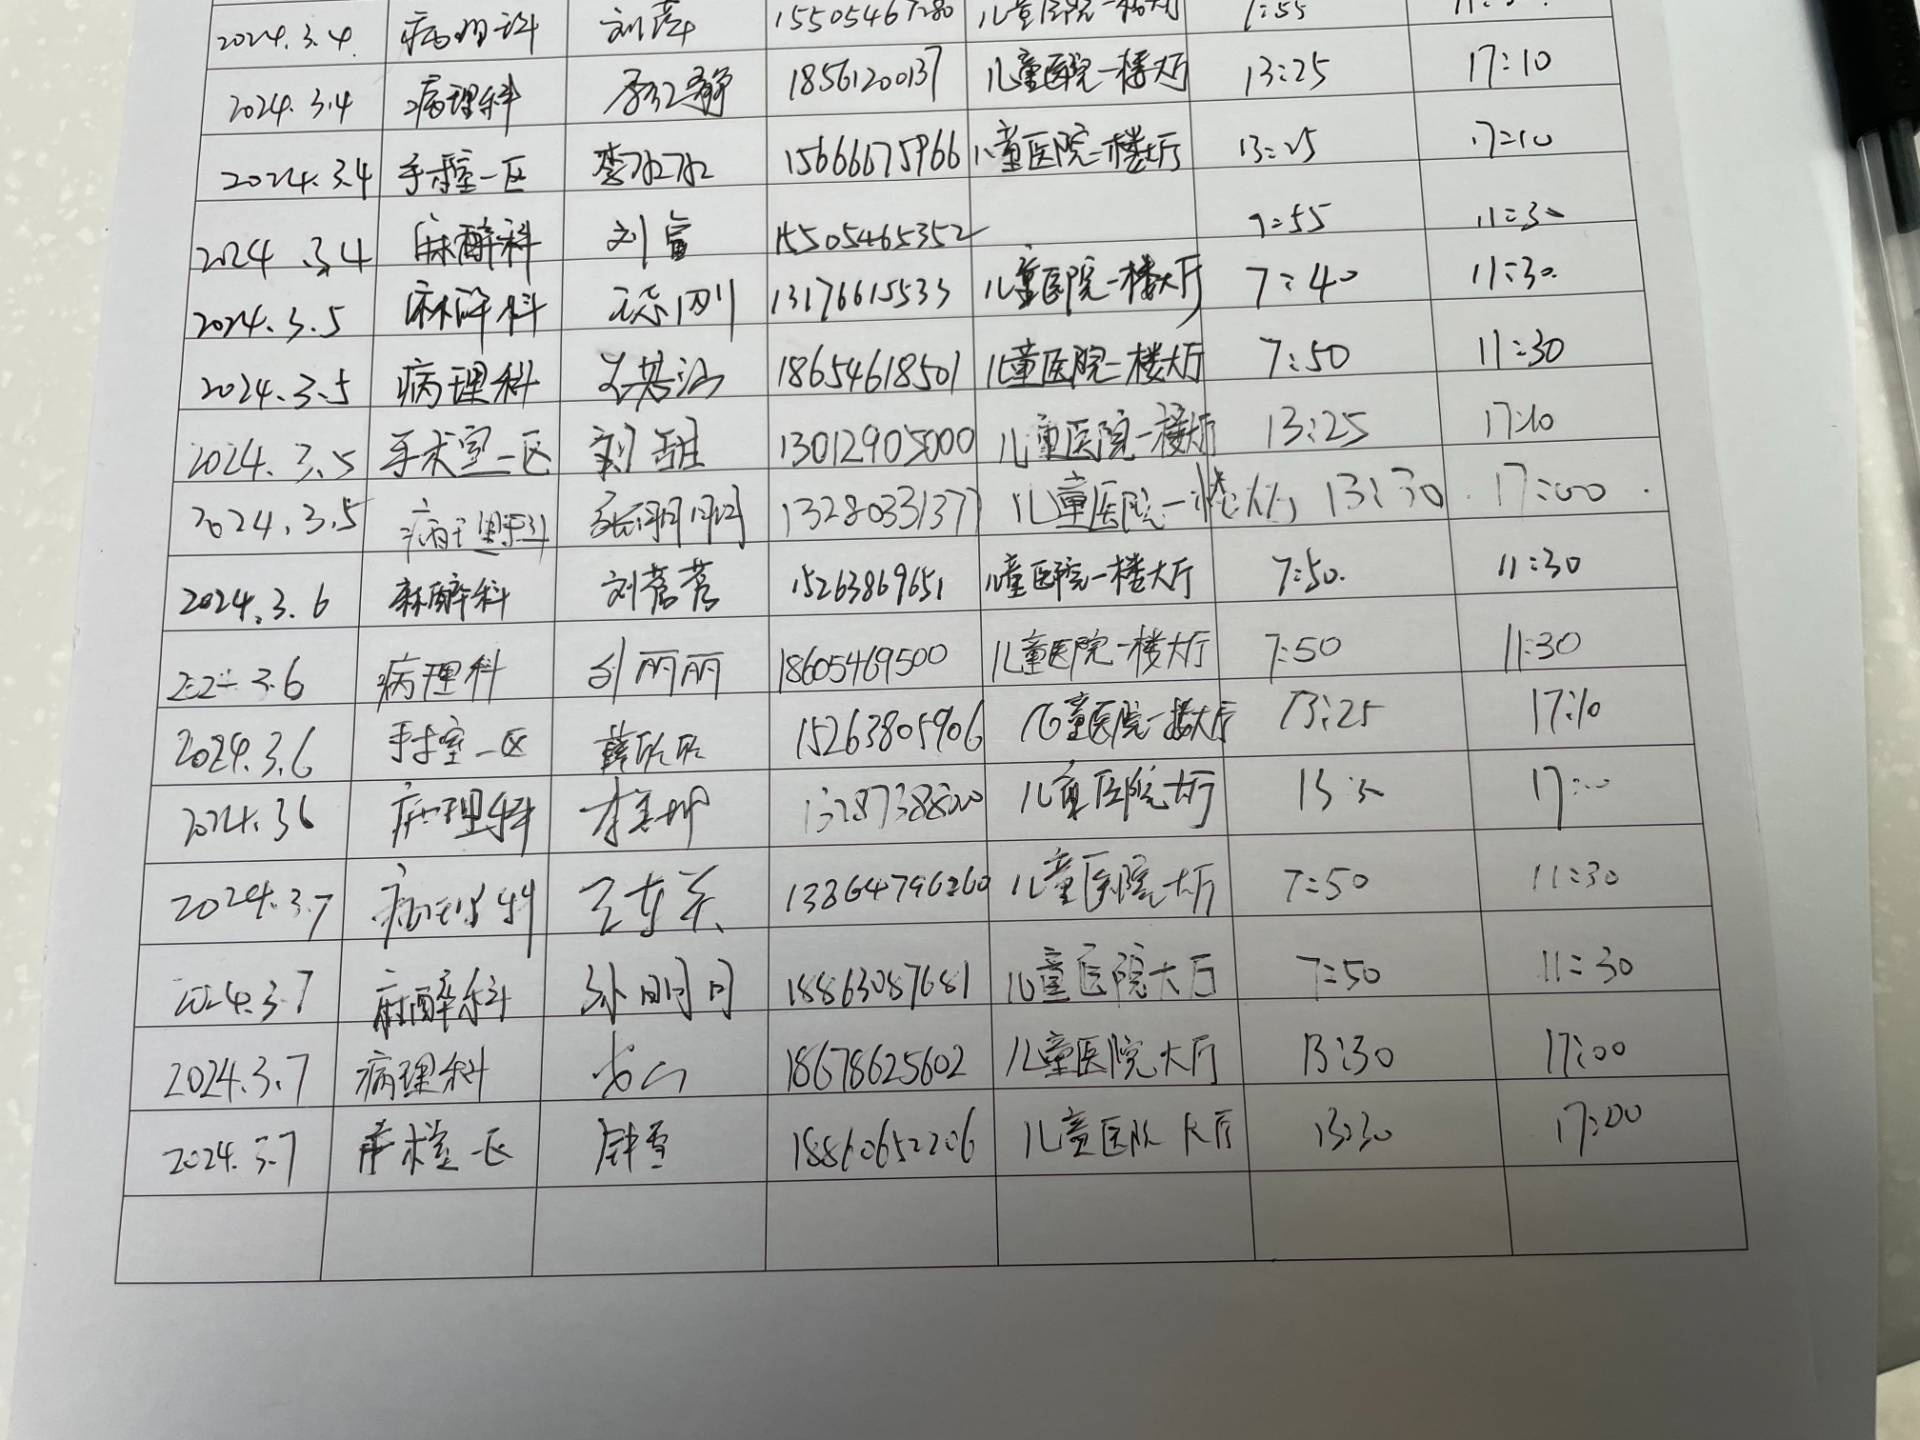 2024.3.4 病理科 刘萍 15505467280 儿童医院一楼大厅 7:55
2024.3.4 病理科 18561200137 儿童医院一楼大厅 13:25 17:10
2024.3.4 手术室一区 李冰冰 15666675966 儿童医院一楼大厅 13:25 17:10
2024.3.4 麻醉科 刘富 15505465352 7:55 11:30
2024.3.5 麻醉科 13176615533 儿童医院一楼大厅 7:40 11:30
2024.3.5 病理科 18654618501 儿童医院一楼大厅 7:50 11:30
2024.3.5 手术室一区 刘 13012905000 儿童医院一楼大厅 13:25 17:10
2024.3.5 病理科 张明明 13280331377 儿童医院一楼大厅 13:30 17:00
2024.3.6 麻醉科 刘茗茗 15263869651 儿童医院一楼大厅 7:50 11:30
3.6 病理科 刘丽丽 18605469500 儿童医院一楼大厅 7:50 11:30
2024.3.6 手术室一区 薛欣欣 15263805906 儿童医院一楼大厅 13:25 17:10
2024.3.6 病理科 儿童医院大厅 17:00
2024.3.7 病理科 13364796260 儿童医院大厅 7:50 11:30
2024.3.7 麻醉科 孙明月 18863087681 儿童医院大厅 7:50 11:30
2024.3.7 病理科 18678625602 儿童医院大厅 13:30 17:00
2024.3.7 手术室一区 18860652206 儿童医院 大厅 13:30 17:00